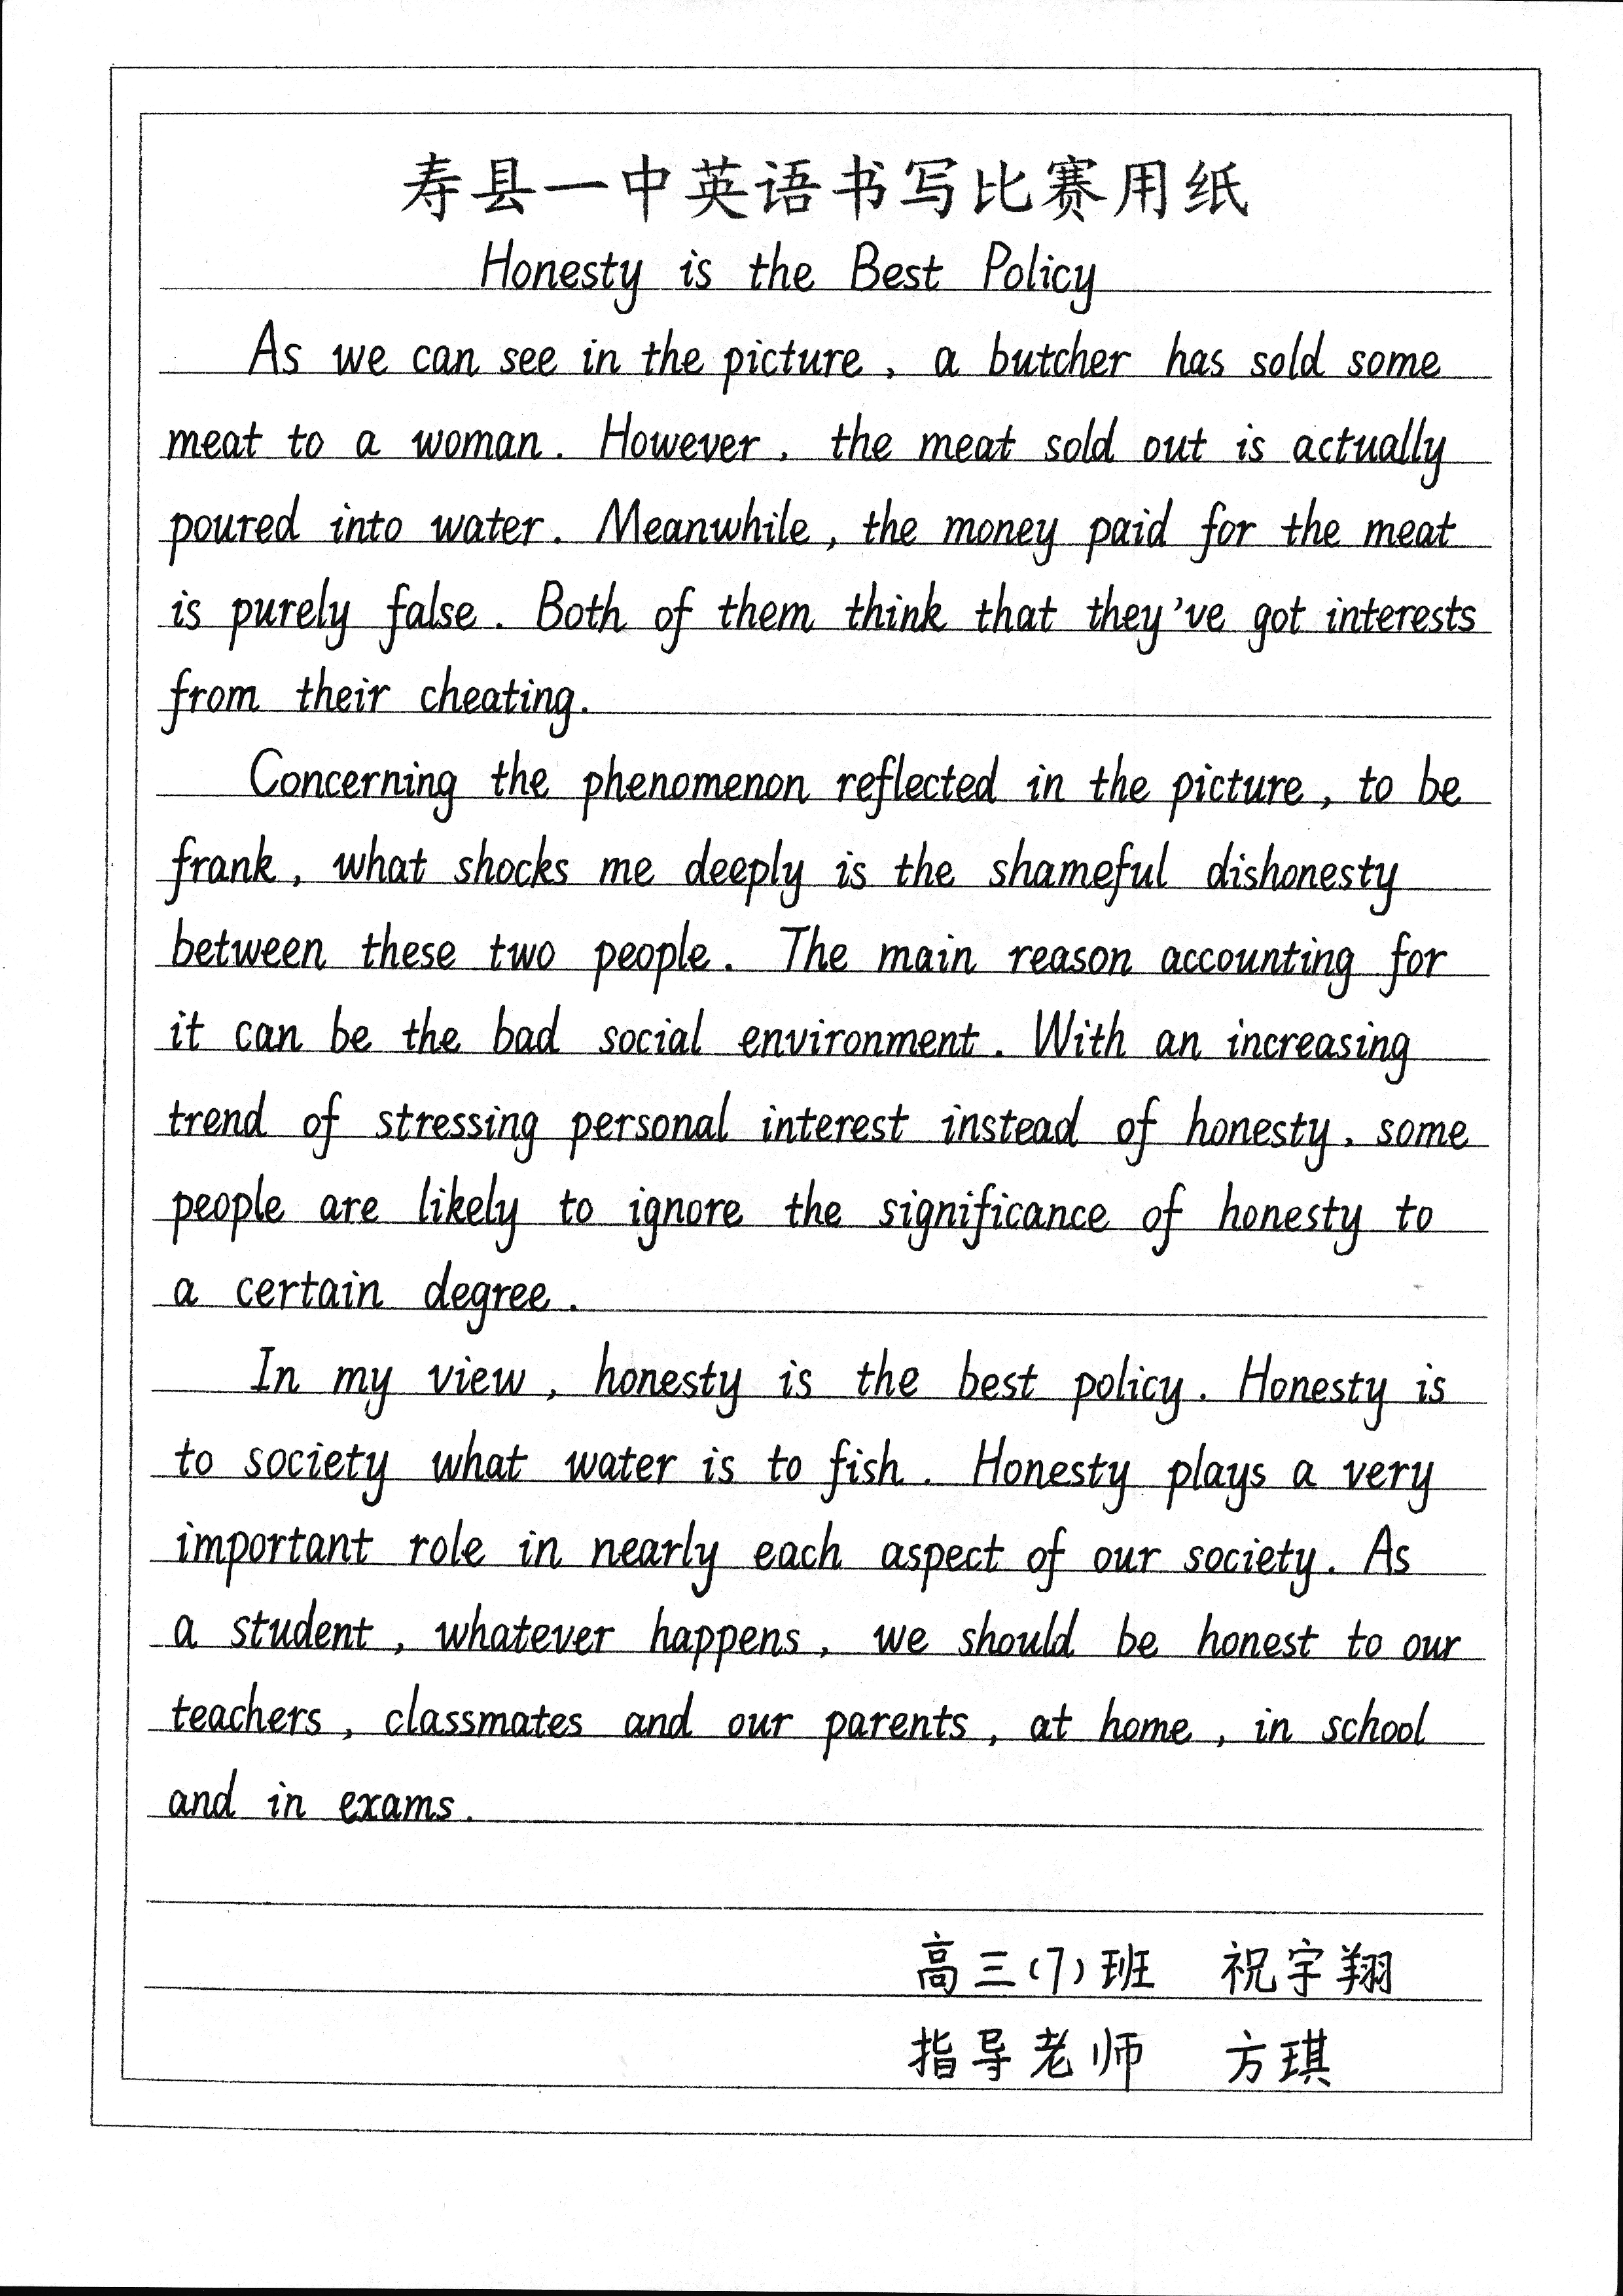 寿县一中英语书写比赛用纸
Honesty is the Best Policy
As we can see in the picture, a butcher has sold some
meat to a woman. However, the meat sold out is actually
poured into water. Meanwhile, the money paid for the meat
is purely false. Both of them think that they've got interests
from their cheating.
Concerning the phenomenon reflected in the picture, to be
frank, what shocks me deeply is the shameful dishonesty
between these two people. The main reason accounting for
it can be the bad social environment. With an increasing
trend of stressing personal interest instead of honesty, some
people are likely to ignore the significance of honesty to
a certain degree.
In my view, honesty is the best policy. Honesty is
to society what water is to fish. Honesty plays a very
important role in nearly each aspect of our society. As
a student, whatever happens, we should be honest to our
teachers, classmates and our parents, at home, in school
and in exams.
高三(7)班 祝宇翔
指导老师 方琪